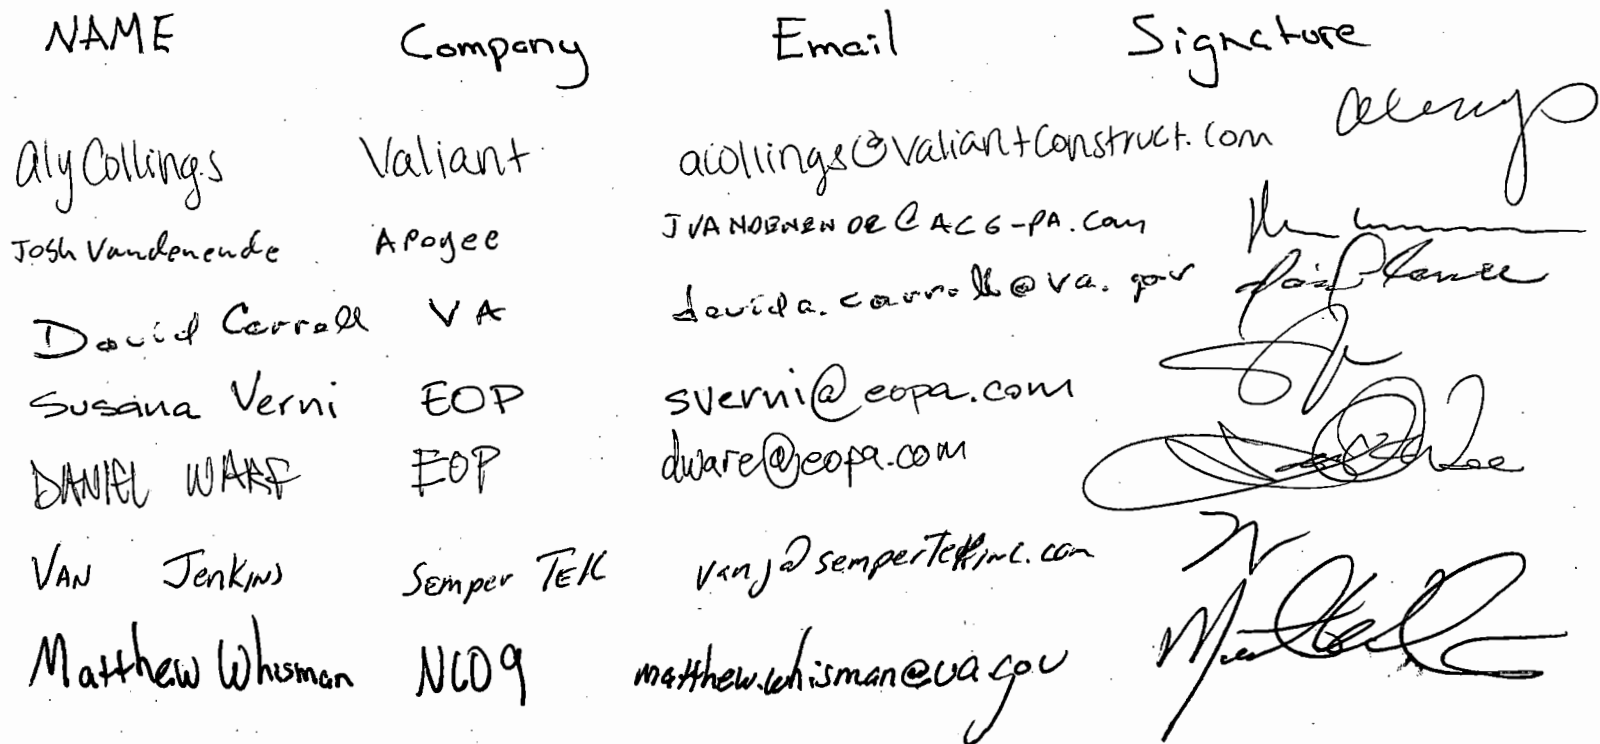 NAME Company Email Signature
Aly Collings Valiant acollings@valiantconstruct.com
Josh Vandenende Apogee JVANDENENDE@ACG-PA.com
David Carroll VA davida.carroll@va.gov
Susana Verni EOP sverni@eopa.com
DANIEL WARE EOP dware@eopa.com
VAN Jenkins Semper TEK vanj@semperTekinc.com
Matthew Whisman NCO9 matthew.whisman@va.gov